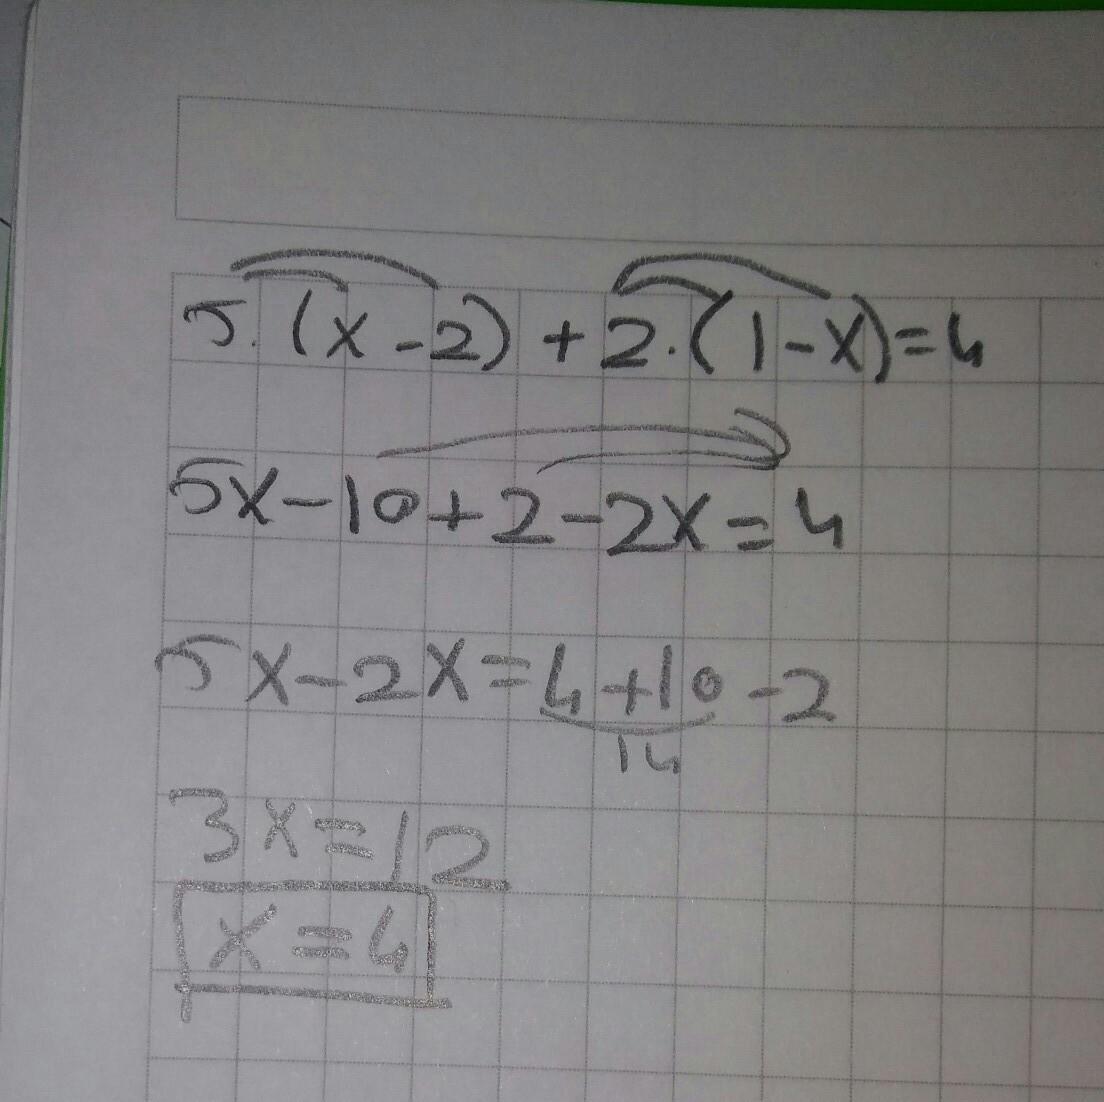 5.(x-2)+2.(1-x)=4
5x-10+2-2x=4
5x-2x=4+10-2
14
3x=12
x=4